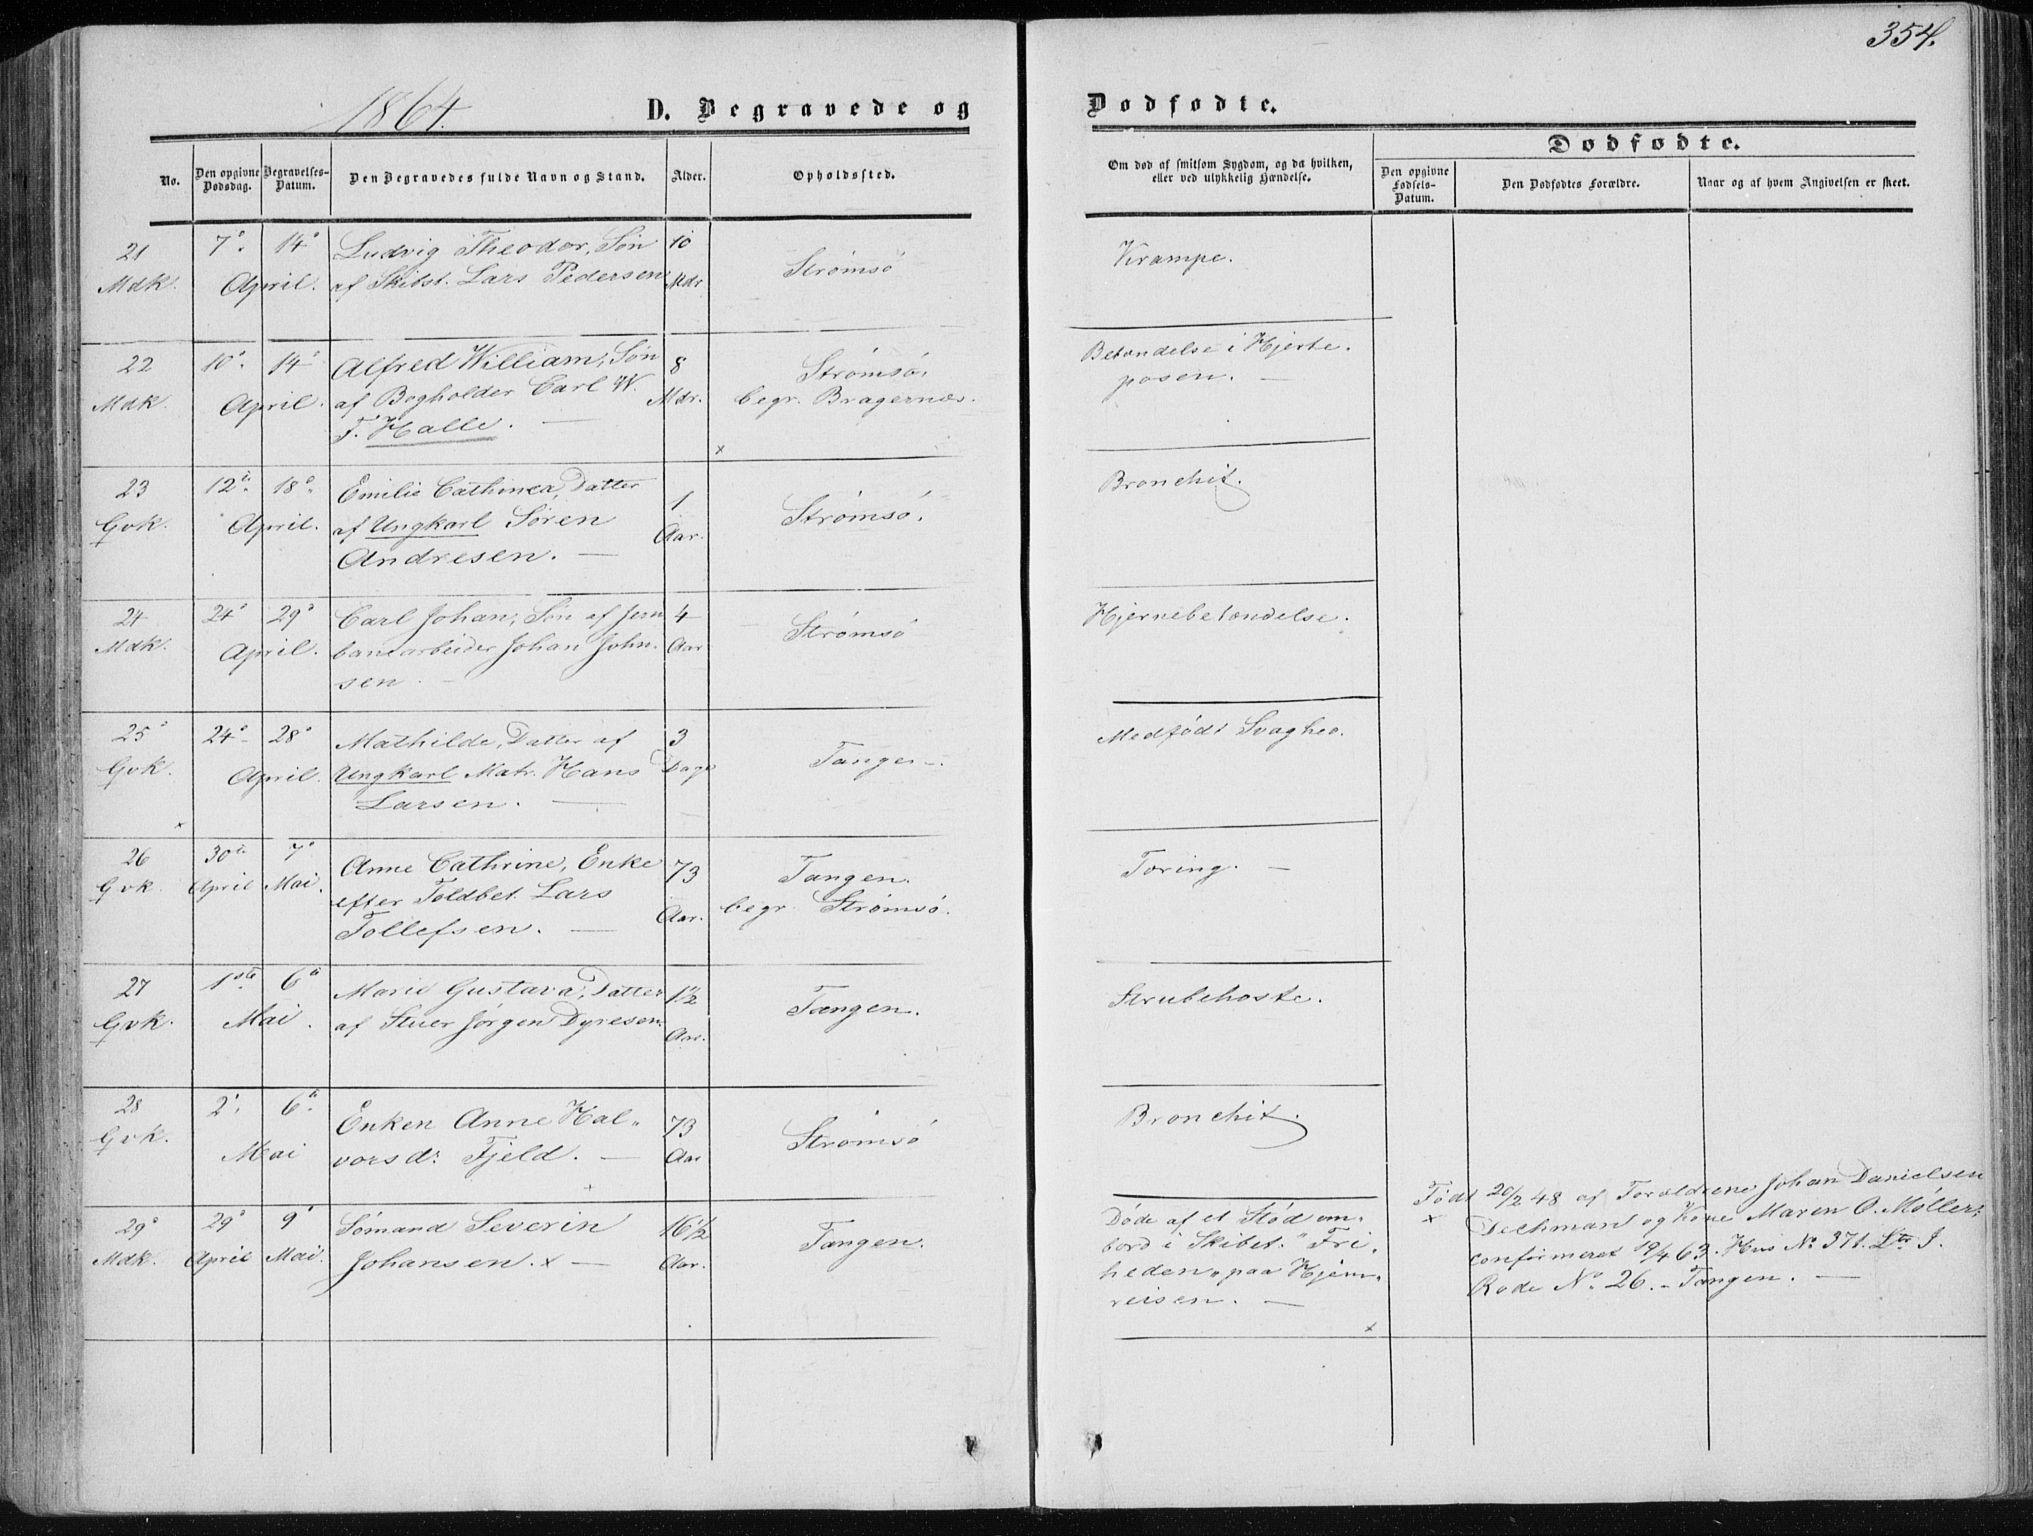 354.
1864. D. Begravede og Dødfødte.
No. Den opgivne Dødsdag. Begravelses-Datum. Den Begravedes fulde Navn og Stand. Alder. Opholdssted. Om død af smitsom Sygdom, og da hvilken, eller ved ulykkelig Hændelse. Dødfødte.
Den opgivne Fødsels-Datum. Den Dødfødtes Forældre. Naar og af hvem Angivelsen er skeet.
21 7de 14de Ludvig Theodor, Søn 10 Strømsø Krampe.
Mdk. April. af Skibst. Lars Pedersen Mdr
22 10de 14de Alfred William, Søn 8 Strømsø, Betændelse i Hjerte-
Mdk. April. af Bogholder Carl W. Mdr. begr. Bragernæs. posen. —
F. Halle. — x
23 12te 18de Emilie Cathinca, Datter 1 Strømsø. Bronchit.
Gvk. April. af Ungkarl Søren Aar.
Andresen. —
24 24de 29de Carl Johan, Søn af Jern 4 Strømsø Hjernebetændelse.
Mdk. April. banearbeider Johan John- Aar
sen. —
25 24de 28de Mathilde, Datter af 3 Tangen. Medfødt Svaghed.
Gvk. April. Ungkarl Matr. Hans Dage
x Larsen. —
26 30te 7de Anne Cathrine, Enke 73 Tangen. Tæring. —
Gvk. April Mai. efter Toldbet. Lars Aar. begr. Strømsø.
Tollefsen. —
27 1ste 6te Marie Gustava, Datter 1 1/2 Tangen. Strubehoste.
Gvk. Mai. af Stuer Jørgen Dyresen. Aar.
28 2den 6te Enken Anne Hal- 73 Strømsø Bronchit.
Gvk. Mai vorsdr Fjeld. — Aar
x
29 29de 9de Sømand Severin 16 1/2 Tangen. Døde af et Stød om-
Mdk. April Mai. Johansen. x — Aar. bord i Skibet "Fri-
heden" paa Hjem-
reisen. —
x
Født 20/2 48 af Forældrene Johan Danielsen
x Dechman og Kone Maren O. Møller;
confirmeret 19/4 63. Hus No 371. Ltr J.
Rode No 26. - Tangen. —